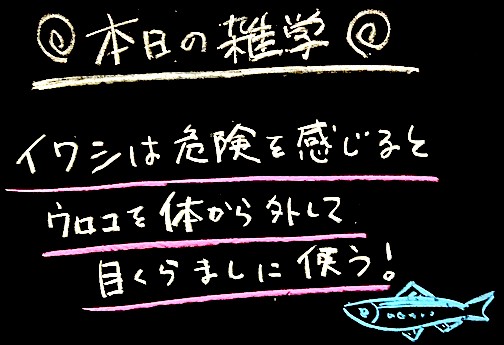 本日の雑学
イワシは危険を感じると
ウロコを体から外して
目くらましに使う!